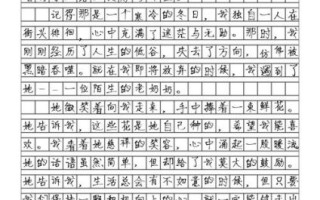 记得那是一个寒冷的冬日，我独自一人在
街头徘徊，心中充满了迷茫与无助。那时，我
刚刚经历了人生的低谷，失去了方向，仿佛被
黑暗吞噬。就在我即将放弃的时候，我遇到了
她---一位陌生的老奶奶。
她微笑着向我走来，手中捧着一束鲜花。
她告诉我，这些花是她自己种的，希望我能喜
欢。我看着她慈祥的笑容，心中涌起一股暖流
她的话语虽然简单，但却给了我莫大的鼓励。
她告诉我，生活总会有不如意的时候，但只要